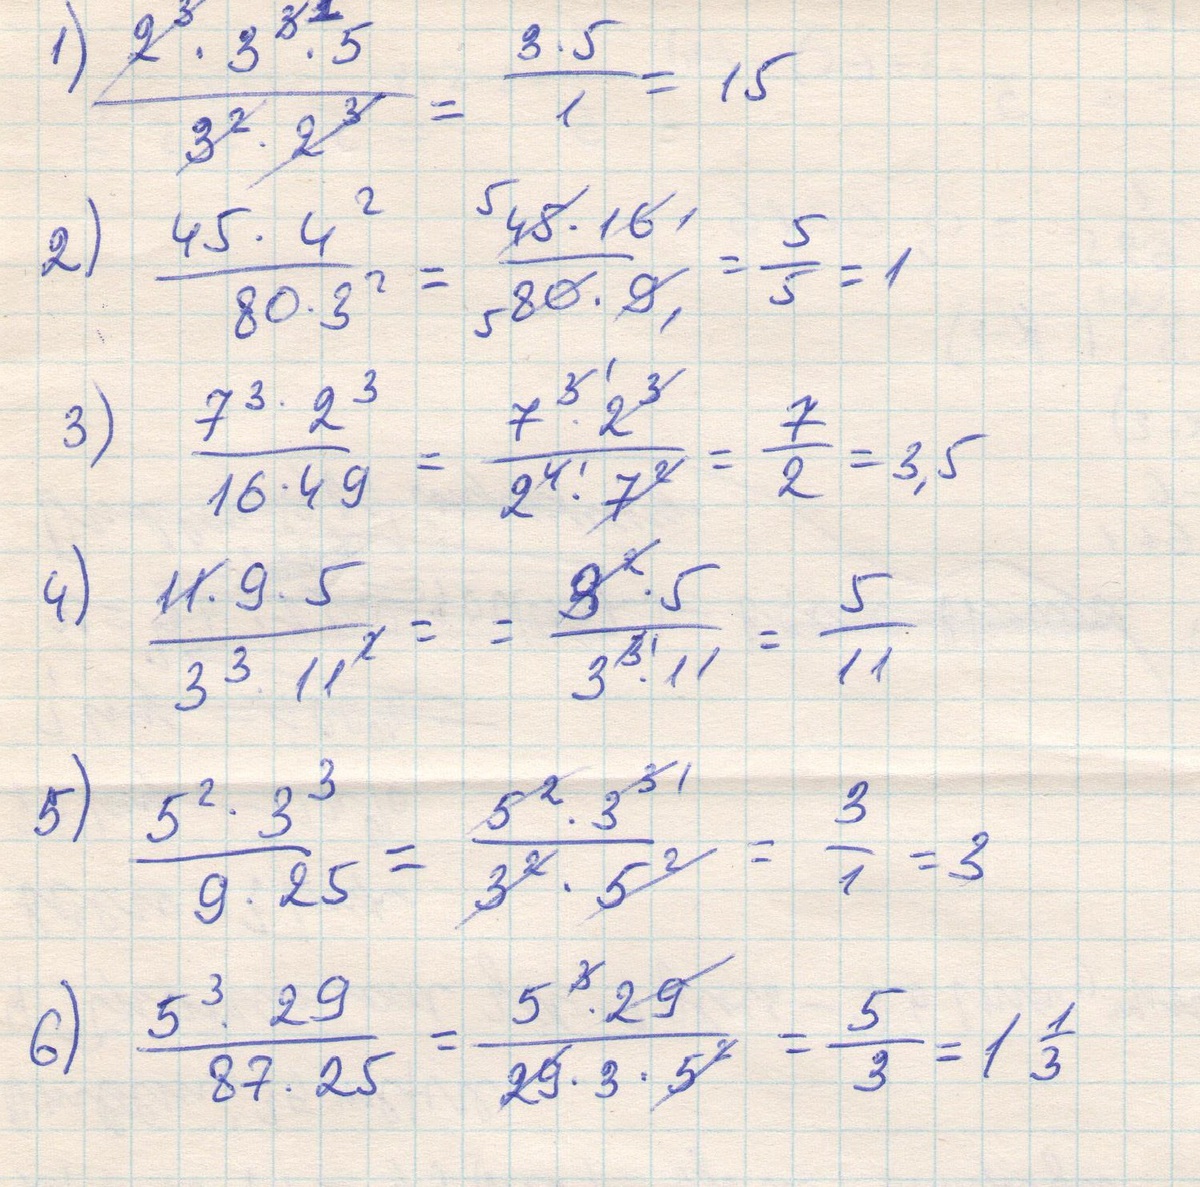 1) 2³ · 3³ ¹ · 5 / 3² · 2³ = 3 · 5 / 1 = 15
2) 45 · 4² / 80 · 3² = ⁵45 · 16 ¹ / ⁵80 · 9 ₁ = 5 / 5 = 1
3) 7³ · 2³ / 16 · 49 = 7³ ¹ · 2³ / 2⁴ ¹ · 7² = 7 / 2 = 3,5
4) 11 · 9 · 5 / 3³ · 11² = = 3² · 5 / 3³ ¹ · 11 = 5 / 11
5) 5² · 3³ / 9 · 25 = 5² · 3³ ¹ / 3² · 5² = 3 / 1 = 3
6) 5³ · 29 / 87 · 25 = 5³ · 29 / 29 · 3 · 5² = 5 / 3 = 1 1/3